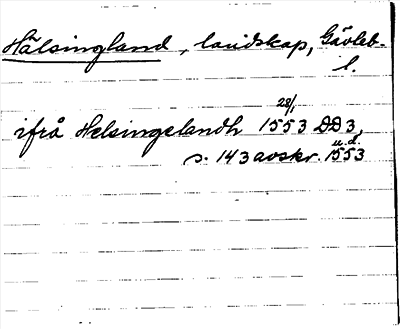 Hälsingland, landskap, Gävleb.
l.
ifrå Helsingelandh 28/1 1553 DD3,
s. 143 avskr. u.d. 1553